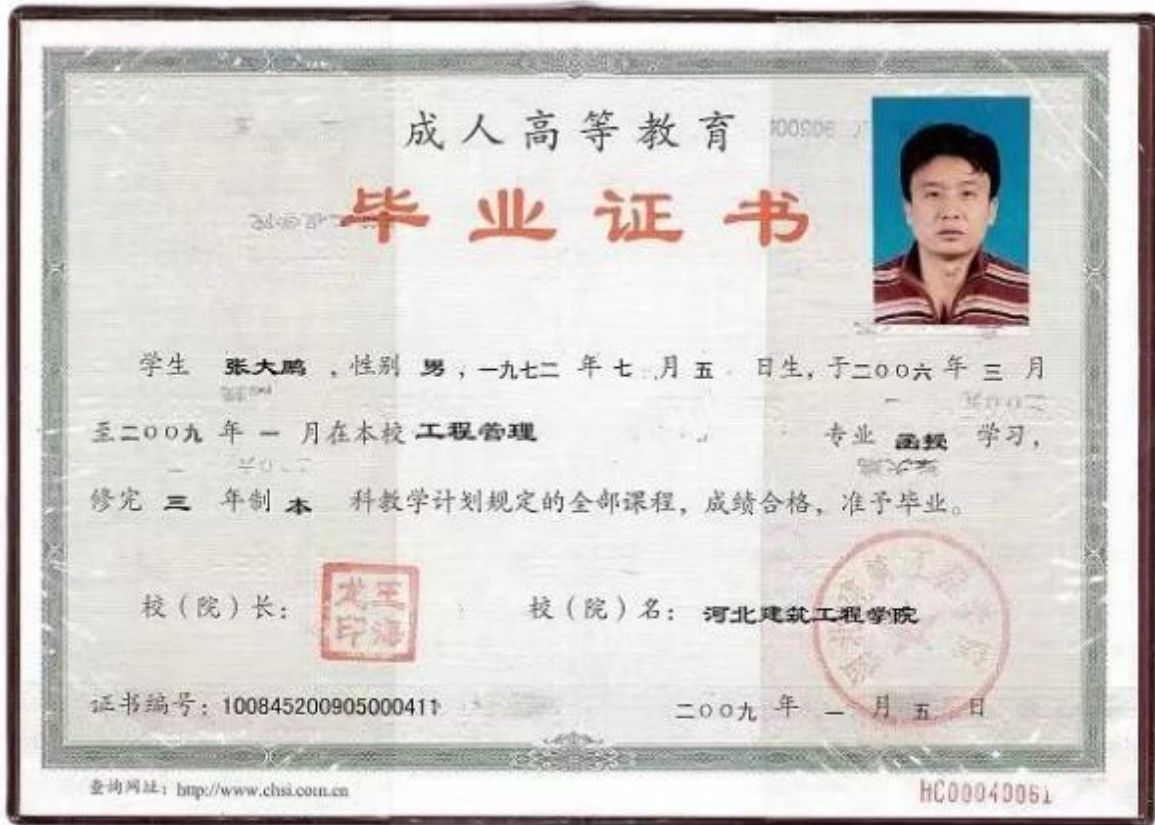 成人高等教育
毕业证书
学生 张大鹏 ,性别 男 ,一九七二 年 七 月 五 日生,于二00六 年 三 月
至二00九 年 一 月在本校 工程管理 专业 函授 学习,
修完 三 年制 本 科教学计划规定的全部课程,成绩合格,准予毕业。
校(院)长: 王海龙印 校(院)名: 河北建筑工程学院
证书编号:100845200905000411 二00九 年 一 月 五 日
查询网址:http://www.chsi.com.cn HC00040061